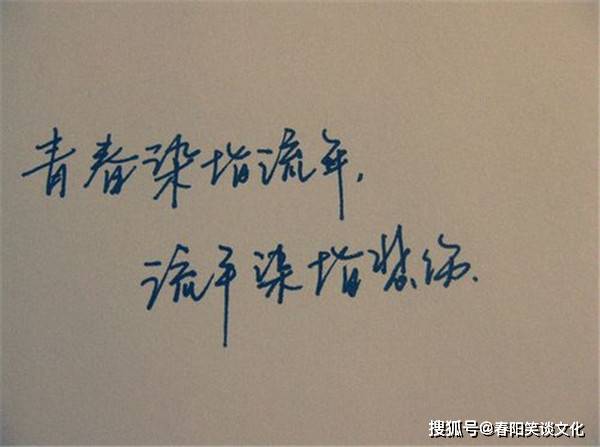 青春染指流年，
流年染指悲伤、
搜狐号@春阳笑谈文化